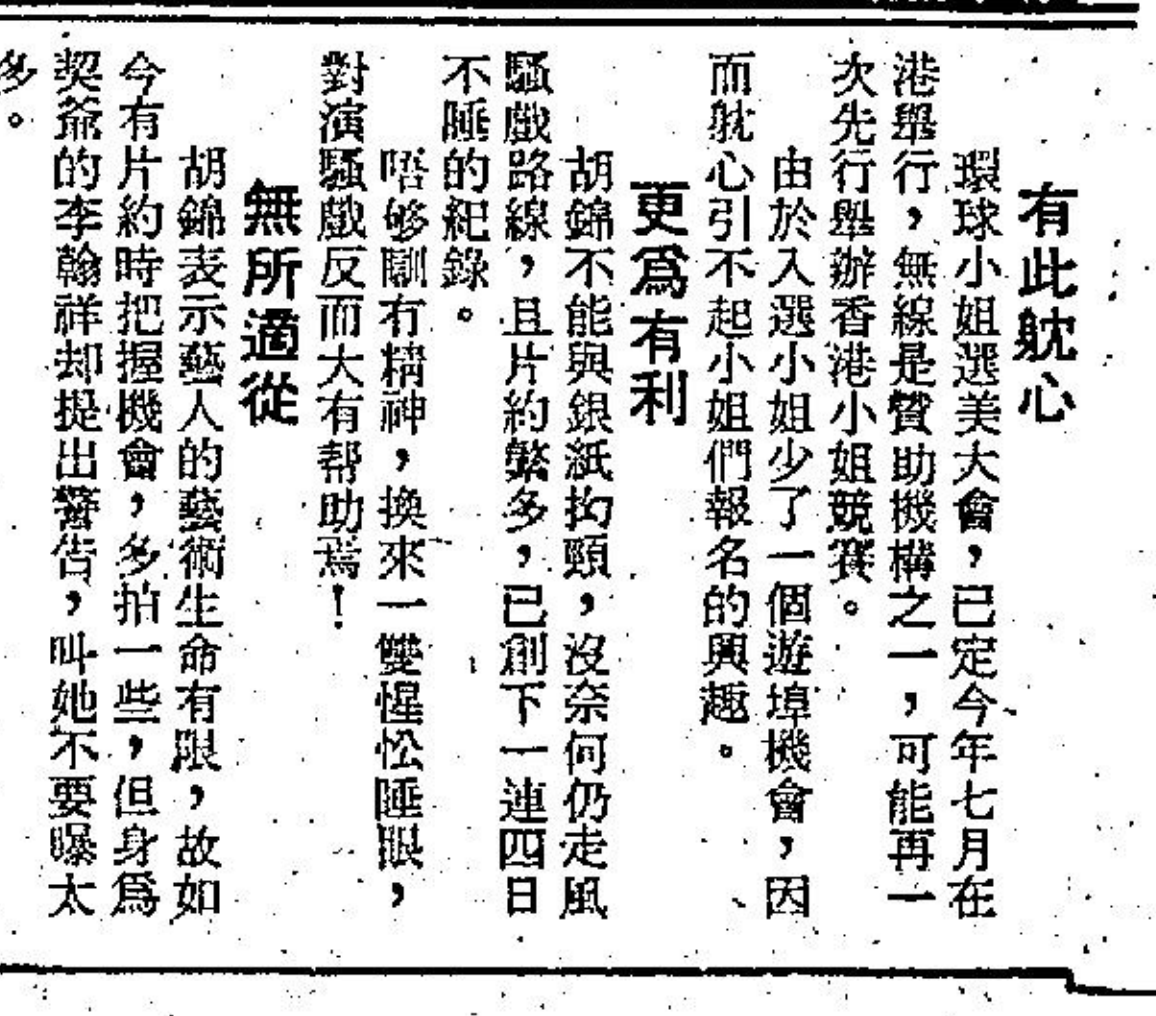 有此躭心
環球小姐選美大會，已定今年七月在
港舉行，無線是贊助機構之一，可能再一
次先行舉辦香港小姐競賽。
由於入選小姐少了一個遊埠機會，因
而躭心引不起小姐們報名的興趣。
更爲有利
胡錦不能與銀紙拗頸，沒奈何仍走風
騷戲路線，且片約繁多，已創下一連四日
不睡的紀錄。
唔够瞓冇精神，換來一雙惺忪睡眼，
對演騷戲反而大有帮助焉！
無所適從
胡錦表示藝人的藝術生命有限，故如
今有片約時把握機會，多拍一些，但身爲
契爺的李翰祥却提出警告，叫她不要曝太
多。